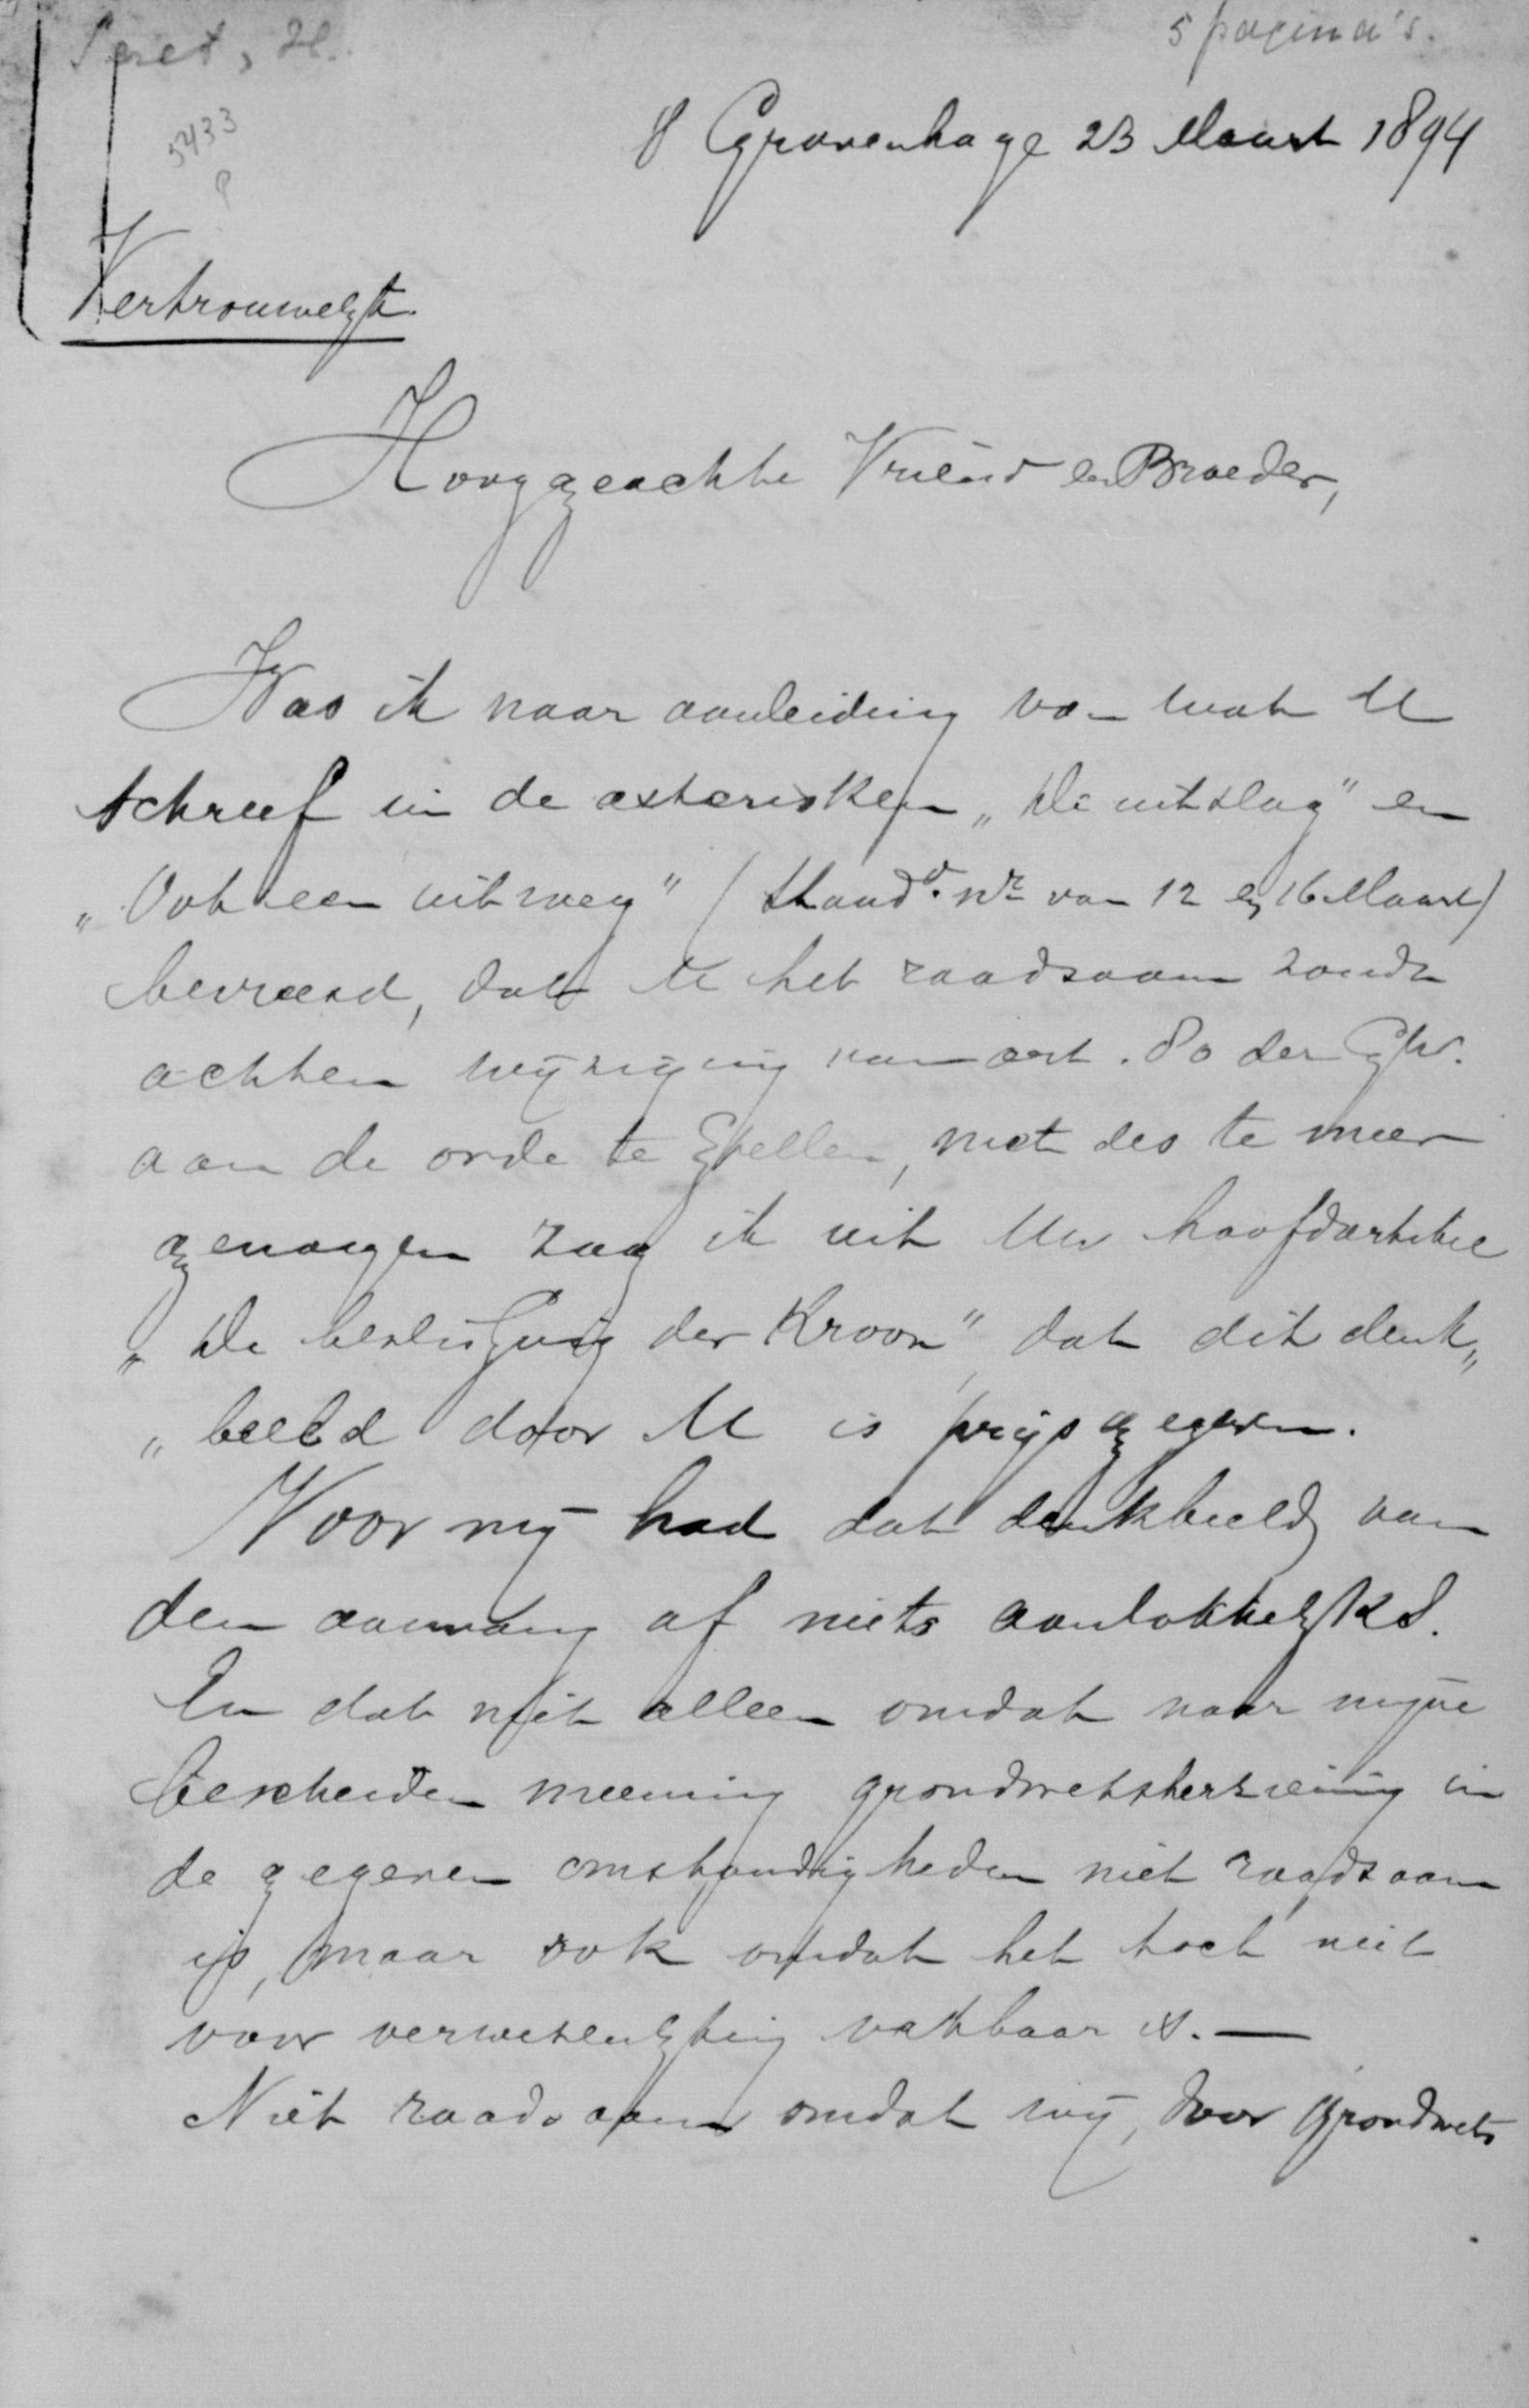 5 pagina's.
5433
P
's Gravenhage 23 Maart 1894
Vertrouwelijk.
Hooggeachte Vriend en Broeder,
Was ik naar aanleiding van wat U
schreef in de asterisken „De uitslag" en
„Ook een uitweg" (Standd. nrs van 12 en 16 Maart)
bevreesd, dat U het raadzaam zoudt
achten wijziging van art. 80 der GW.
aan de orde te stellen, met des te meer
genoegen zag ik uit Uw hoofdartikel
„De beslissing der Kroon", dat dit denk„
„beeld door U is prijsgegeven.
Voor mij had dat denkbeeld van
den aanvang af niets aanlokkelijks.
En dat niet alleen omdat naar mijne
bescheiden meening grondwetsherziening in
de gegeven omstandigheden niet raadzaam
is, maar ook omdat het toch niet
voor verwezenlijking vatbaar is. —
Niet raadzaam omdat wij, door grondwets